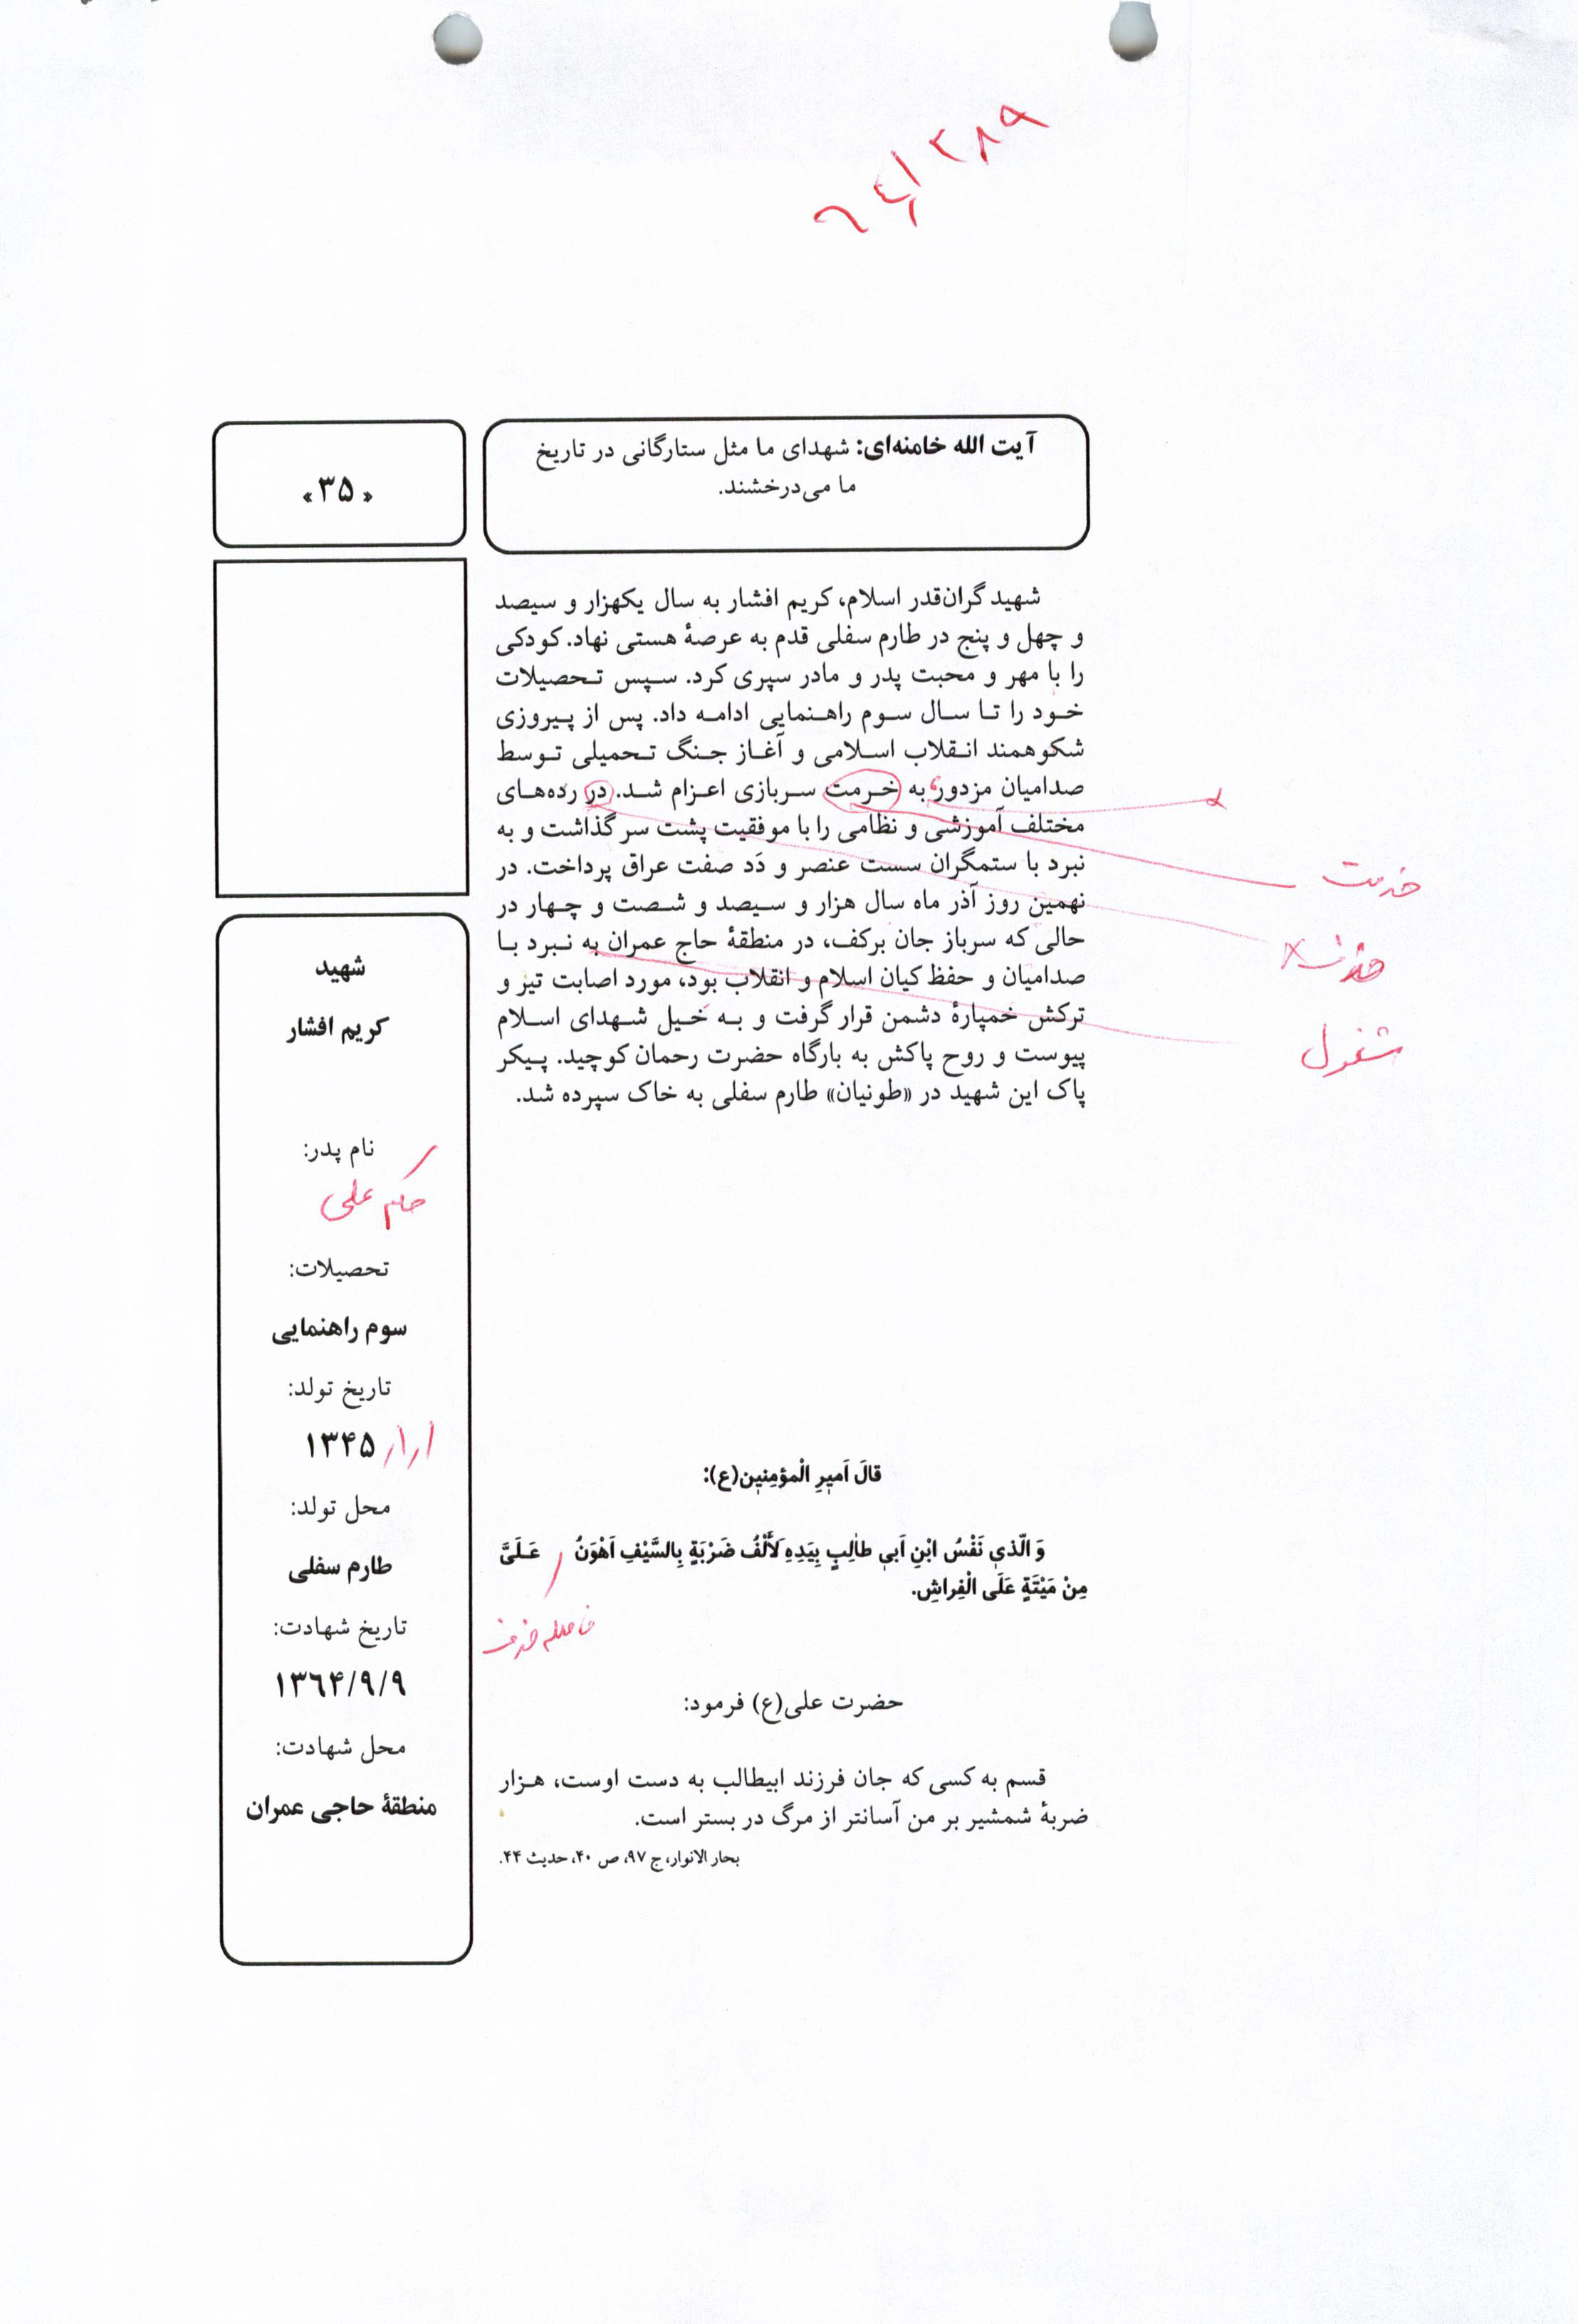 آیت الله خامنه‌ای: شهدای ما مثل ستارگانی در تاریخ
ما می‌درخشند.
« ۳۵ »
شهید گران‌قدر اسلام، کریم افشار به سال یکهزار و سیصد
و چهل و پنج در طارم سفلی قدم به عرصهٔ هستی نهاد. کودکی
را با مهر و محبت پدر و مادر سپری کرد. سپس تحصیلات
خود را تا سال سوم راهنمایی ادامه داد. پس از پیروزی
شکوهمند انقلاب اسلامی و آغاز جنگ تحمیلی توسط
صدامیان مزدور، به خرمت سربازی اعزام شد. در رده‌های
مختلف آموزشی و نظامی را با موفقیت پشت سر گذاشت و به
نبرد با ستمگران سست عنصر و دَد صفت عراق پرداخت. در
نهمین روز آذر ماه سال هزار و سیصد و شصت و چهار در
حالی که سرباز جان برکف، در منطقهٔ حاج عمران به نبرد با
صدامیان و حفظ کیان اسلام و انقلاب بود، مورد اصابت تیر و
ترکش خمپارهٔ دشمن قرار گرفت و به خیل شهدای اسلام
پیوست و روح پاکش به بارگاه حضرت رحمان کوچید. پیکر
پاک این شهید در «طونیان» طارم سفلی به خاک سپرده شد.
خدمت
حذف
مشغول
قالَ اَمیرِ الْمؤمِنین(ع):
وَ الّذي نَفْسُ ابْنِ اَبي طالِبٍ بِیَدِهِ لَأَلْفُ ضَرْبَةٍ بِالسَّیْفِ اَهْوَنُ عَلَیَّ
مِنْ مَیْتَةٍ عَلَی الْفِراشِ.
فاصله حذف
حضرت علی(ع) فرمود:
قسم به کسی که جان فرزند ابیطالب به دست اوست، هزار
ضربهٔ شمشیر بر من آسانتر از مرگ در بستر است.
بحار الانوار، ج ۹۷، ص ۴۰، حدیث ۴۴.
شهید
کریم افشار
نام پدر:
حکم علی
تحصیلات:
سوم راهنمایی
تاریخ تولد:
۱۳۴۵/۱/۱
محل تولد:
طارم سفلی
تاریخ شهادت:
۱۳۶۴/۹/۹
محل شهادت:
منطقهٔ حاجی عمران